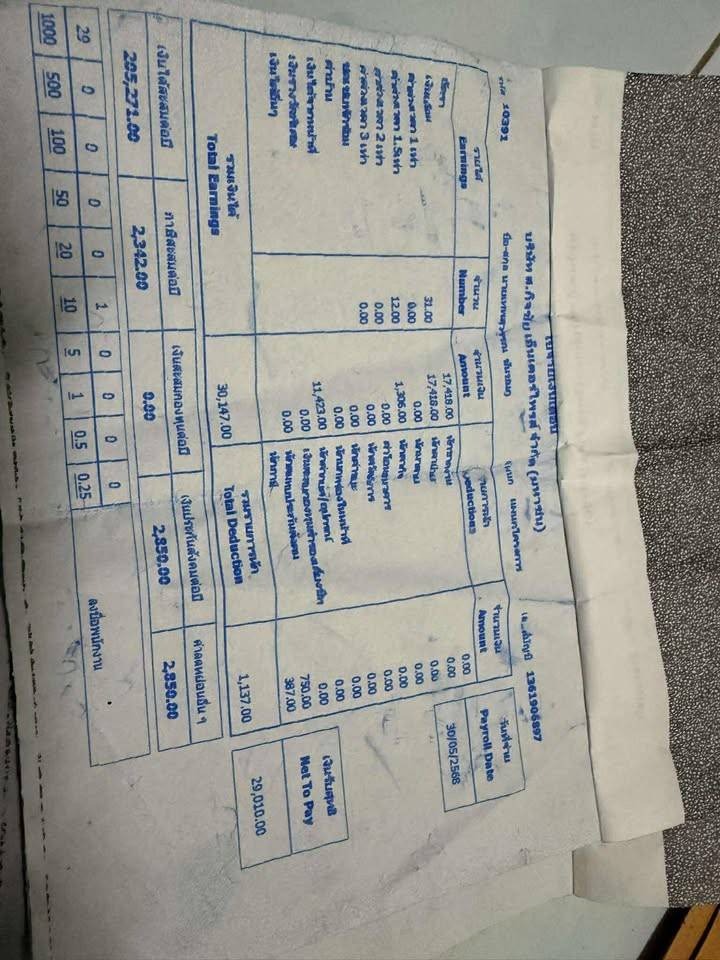 ใบจ่ายเงินเดือน
บริษัท ส.กิจชัย เอ็นเตอร์ไพรส์ จำกัด (มหาชน)
รหัส 10391 ชื่อ-สกุล แผนก เลขที่บัญชี 1361906897
รายได้ จำนวน จำนวนเงิน รายการหัก จำนวนเงิน วันที่จ่าย
Earnings Number Amount Deductions Amount Payroll Date
30/05/2568
อัตรา 17,418.00 0.00
เงินเดือน 31.00 17,418.00 0.00
ค่าล่วงเวลา 1 เท่า 0.00 0.00 0.00
ค่าล่วงเวลา 1.5 เท่า 12.00 1,306.00 0.00
ค่าล่วงเวลา 2 เท่า 0.00 0.00 0.00
ค่าล่วงเวลา 3 เท่า 0.00 0.00 0.00
0.00 0.00
ค่าบ้าน 0.00 0.00
เงินได้จากหน้าที่ 11,423.00 0.00
เงินรางวัลพิเศษ 0.00 750.00
เงินได้อื่นๆ 0.00 หักสมทบประกันสังคม 387.00
หักภาษี
รวมเงินได้ 30,147.00 รวมรายการหัก 1,137.00 เงินรับสุทธิ
Total Earnings Total Deduction Net To Pay
29,010.00
เงินได้สะสมต่อปี ภาษีสะสมต่อปี เงินสะสมกองทุนต่อปี เงินประกันสังคมต่อปี ค่าลดหย่อนอื่น ๆ
205,271.00 2,342.00 0.00 2,850.00 2,850.00
29 0 0 0 0 1 0 0 0 0
1000 500 100 50 20 10 5 1 0.5 0.25
ลงชื่อพนักงาน